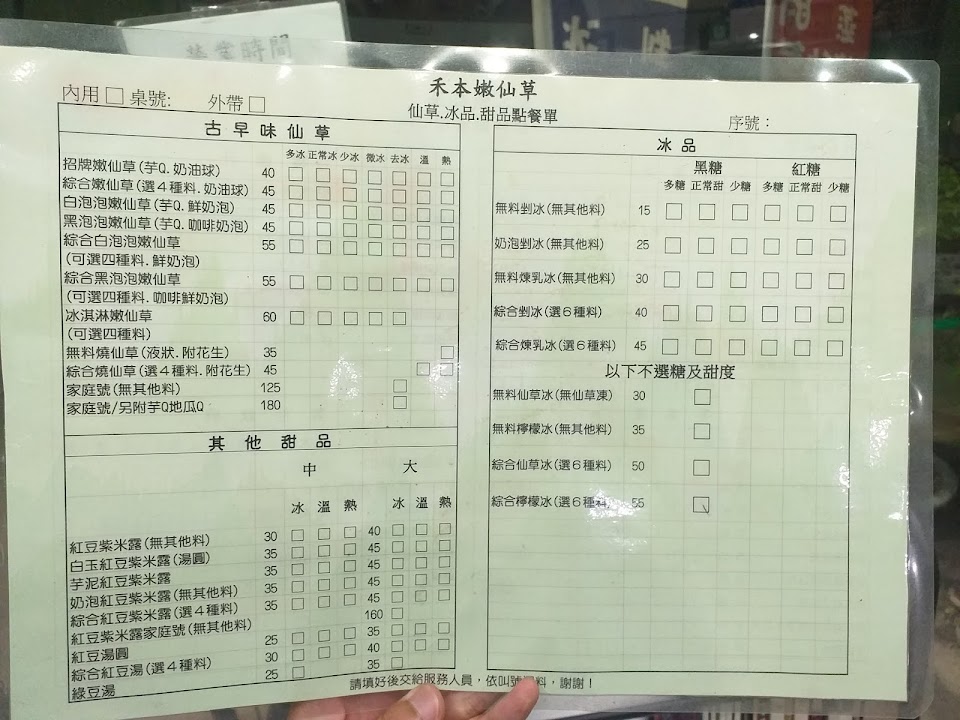 營業時間
禾本嫩仙草
仙草.冰品.甜品點餐單
內用 □ 桌號: 外帶 □
序號：
古早味仙草
多冰 正常冰 少冰 微冰 去冰 溫 熱
招牌嫩仙草(芋Q.奶油球) 40 □ □ □ □ □ □ □
綜合嫩仙草(選４種料.奶油球) 45 □ □ □ □ □ □ □
白泡泡嫩仙草(芋Q.鮮奶泡) 45 □ □ □ □ □ □ □
黑泡泡嫩仙草(芋Q.咖啡奶泡) 45 □ □ □ □ □ □ □
綜合白泡泡嫩仙草 55 □ □ □ □ □ □ □
(可選四種料.鮮奶泡)
綜合黑泡泡嫩仙草 55 □ □ □ □ □ □ □
(可選四種料.咖啡鮮奶泡)
冰淇淋嫩仙草 60 □ □ □ □ □
(可選四種料)
無料燒仙草(液狀.附花生) 35 □
綜合燒仙草(選４種料.附花生) 45 □ □
家庭號(無其他料) 125 □
家庭號/另附芋Q地瓜Q 180 □
其他甜品
中 大
冰 溫 熱 冰 溫 熱
紅豆紫米露(無其他料) 30 □ □ □ 40 □ □ □
白玉紅豆紫米露(湯圓) 35 □ □ □ 45 □ □ □
芋泥紅豆紫米露 35 □ □ □ 45 □ □ □
奶泡紅豆紫米露(無其他料) 35 □ □ □ 45 □ □ □
綜合紅豆紫米露(選４種料) 35 □ □ □ 45 □ □ □
紅豆紫米露家庭號(無其他料) 160 □
紅豆湯圓 25 □ □ □ 35 □ □ □
綜合紅豆湯(選４種料) 30 □ □ □ 40 □ □ □
綠豆湯 25 □ 35 □
冰品
黑糖 紅糖
多糖 正常甜 少糖 多糖 正常甜 少糖
無料剉冰(無其他料) 15 □ □ □ □ □ □
奶泡剉冰(無其他料) 25 □ □ □ □ □ □
無料煉乳冰(無其他料) 30 □ □ □ □ □ □
綜合剉冰(選６種料) 40 □ □ □ □ □ □
綜合煉乳冰(選６種料) 45 □ □ □ □ □ □
以下不選糖及甜度
無料仙草冰(無仙草凍) 30 □
無料檸檬冰(無其他料) 35 □
綜合仙草冰(選６種料) 50 □
綜合檸檬冰(選６種料) 55 □
請填好後交給服務人員，依叫號 料，謝謝！